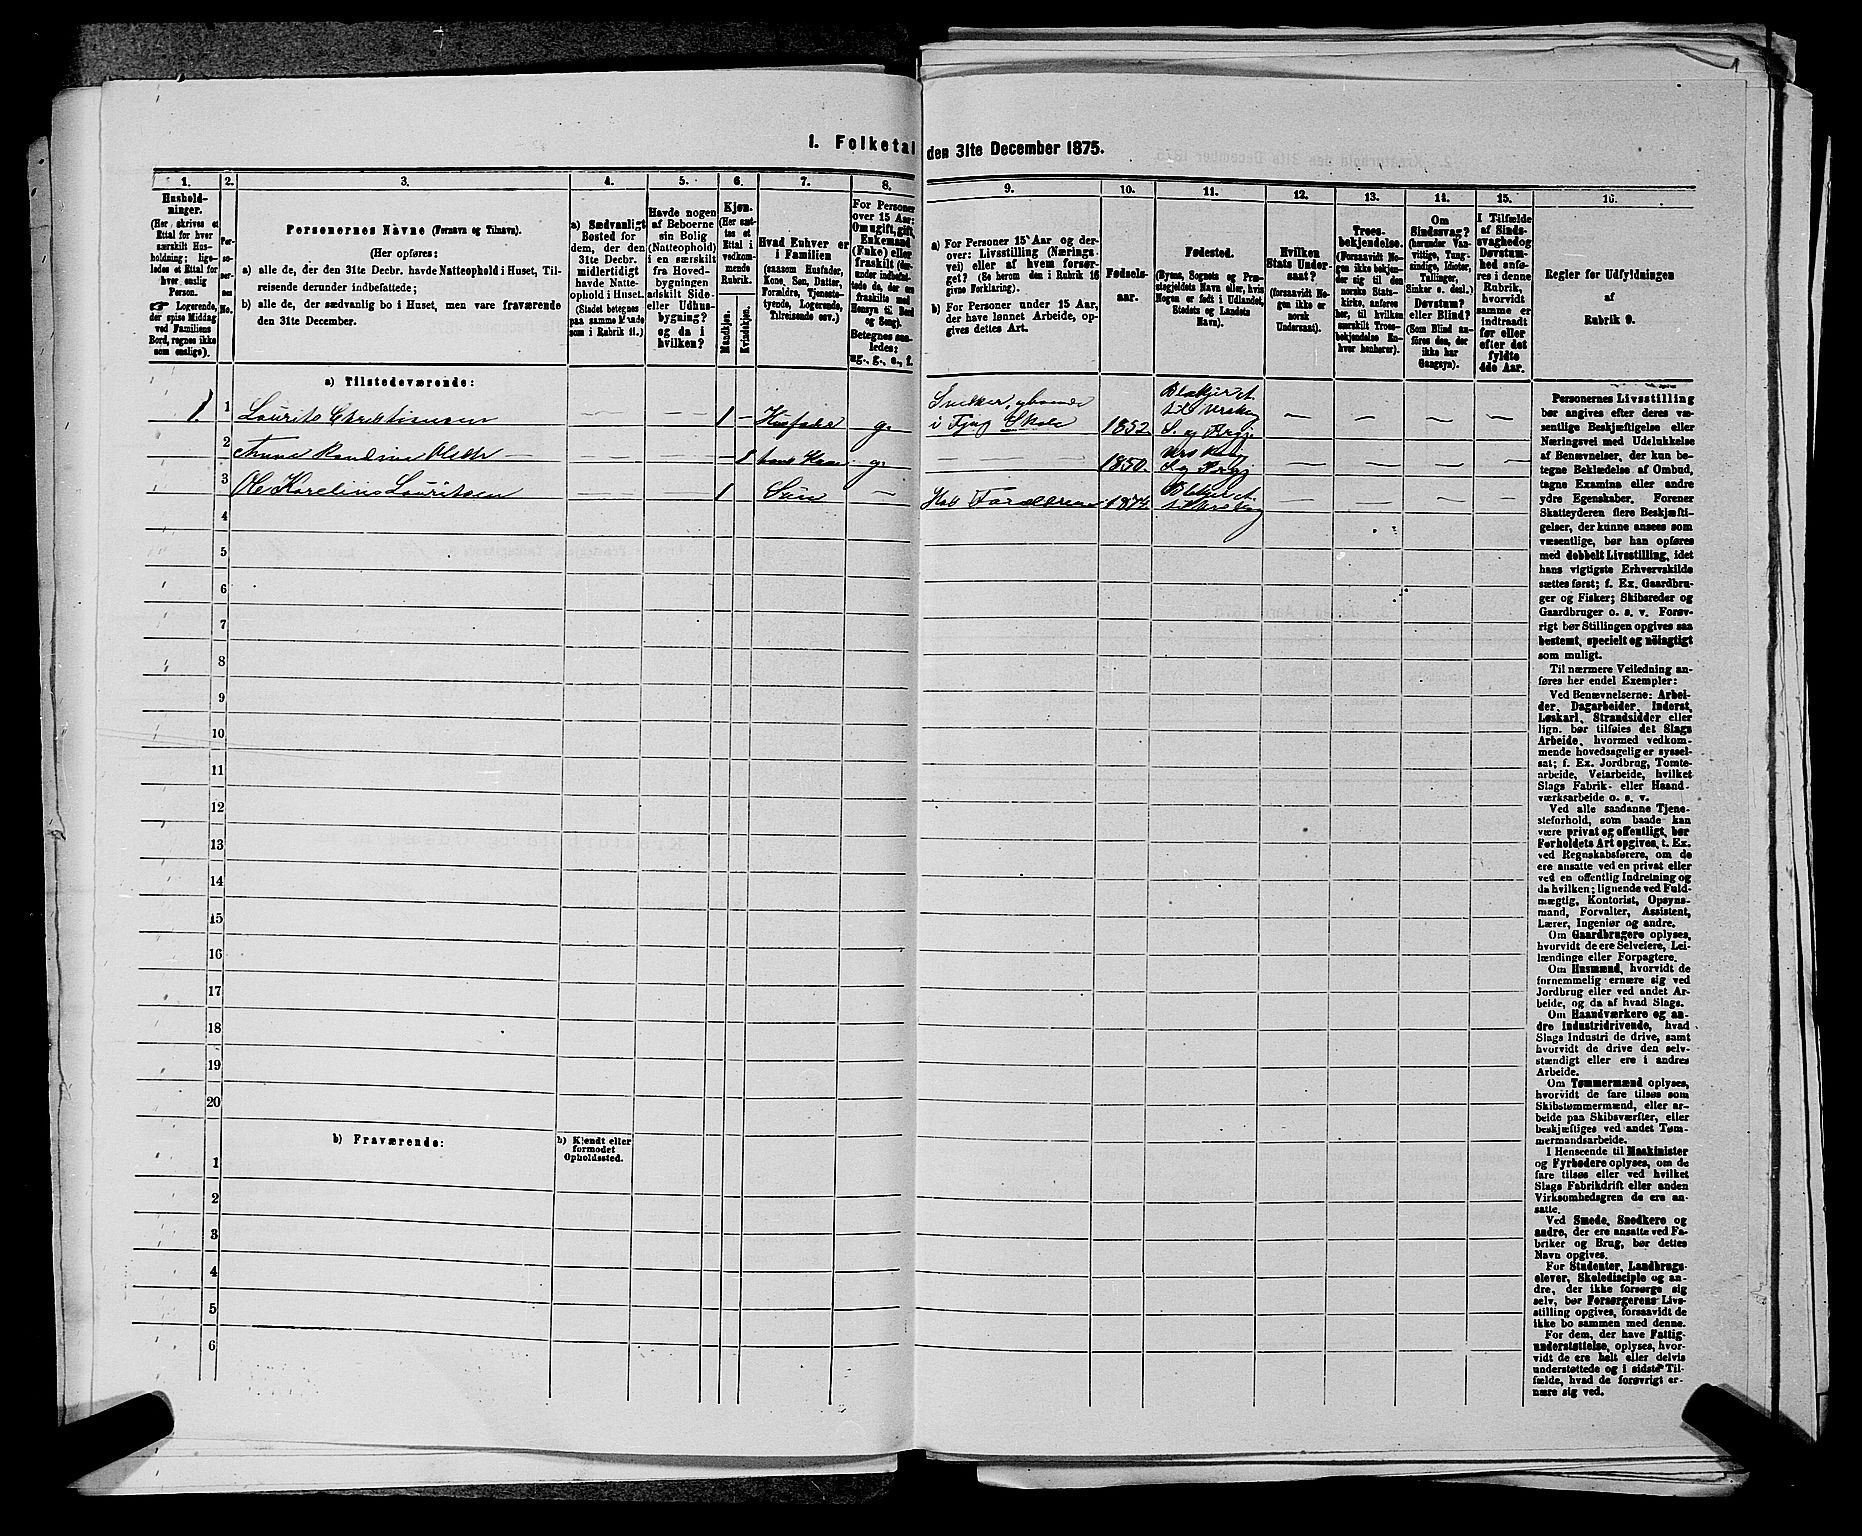 1. Folketal
den 31te December 1875.
1.
2.
3.
4.
5.
6.
7.
8.
9.
10.
11.
12.
13.
14.
15.
16.
Hushold-
ninger.
(Her skrives et
Ettal for hver
særskilt Hus-
holdning; lige-
ledes et Ettal for
hver enslig
Person.
☞ Logerende,
der spise Middag
ved Familiens
Bord, regnes ikke
som enslige).
Per-
so-
ner-
nes
No.
Personernes Navne (Fornavn og Tilnavn).
(Her opføres:
a) alle de, der den 31te Decbr. havde Natteophold i Huset, Til-
reisende derunder indbefattede;
b) alle de, der sædvanlig bo i Huset, men vare fraværende
den 31te December.
a) Sædvanligt
Bosted for
dem, der den
31te Decbr.
midlertidigt
havde Natte-
ophold i Huset.
(Stedet betegnes
paa samme Maade
som i Rubrik 11.)
Havde nogen
af Beboerne
sin Bolig
(Natteophold)
i en særskilt
fra Hoved-
bygningen
adskilt Side-
eller Udhus-
bygning?
og da i
hvilken?
Kjøn.
(Her sæt-
tes et
Ettal i
vedkom-
mende
Rubrik.
Mandkjøn.
Kvindekjøn.
Hvad Enhver er
i Familien
(saasom Husfader,
Kone, Søn, Datter,
Forældre, Tjeneste-
tyende, Logerende,
Tilreisende osv.)
For Personer
over 15 Aar:
Om ugift, gift,
Enkemand
(Enke) eller
fraskilt (der-
under indbefat-
tede de, der ere
fraskilte med
Hensyn til Bord
og Seng).
Betegnes saa-
ledes:
ug., g., e., f.
a) For Personer 15 Aar og der-
over: Livsstilling (Nærings-
vei) eller af hvem forsør-
get? (Se herom den i Rubrik 16
givne Forklaring).
b) For Personer under 15 Aar,
der have lønnet Arbeide, op-
gives dettes Art.
Fødsels-
aar.
Fødested.
(Byens, Sognets og Præ-
stegjeldets Navn eller, hvis
Nogen er født i Udlandet,
Stedets og Landets
Navn).
Hvilken
Stats Under-
saat?
(forsaavidt No-
gen ikke er
norsk
Undersaat).
Troes-
bekjendelse.
(Forsaavidt No-
gen ikke bekjen-
der sig til den
norske Stats-
kirke, anføres
her, til hvilken
særskilt Troes-
bekjendelse En-
hver henhører).
Om
Sindssvag?
(herunder Van-
vittige, Tung-
sindige, Idioter,
Tullinger,
Sinker o. desl.)
Døvstum?
eller Blind?
(Som Blind an-
føres den, der
ikke har
Gangsyn).
I Tilfælde
af Sinds-
svaghed og
Døvstum-
hed anfø-
res i denne
Rubrik,
hvorvidt
samme er
indtraadt
før eller
efter det
fyldte
4de Aar.
Regler for Udfyldningen
af
Rubrik 9.
a) Tilstedeværende:
1. 1 Laurits Christiansen — — 1 — Husfader g. Snedker, gaaende
i Fjug Skole 1852
2 Anna Randine Olsdtr — — 1 hans Kone g. — 1850
3 Ole Karelius Lauritsen — — 1 Søn — Hos Forældrene 1874
4
5
6
7
8
9
10
11
12
13
14
15
16
17
18
19
20
b) Fraværende:
b) Kjendt eller
formodet
Opholdssted.
1
2
3
4
5
6
Personernes Livsstilling
bør angives efter deres væ-
sentlige Beskjæftigelse eller
Næringsvei med Udelukkelse
af Benævnelser, der kun be-
tegne Beklædelse af Ombud,
tagne Examina eller andre
ydre Egenskaber. Forener
Skatteyderen flere Beskjæfti-
gelser, der kunne ansees som
væsentlige, bør han opføres
med dobbelt Livsstilling, idet
hans vigtigste Erhvervskilde
sættes først; f. Ex. Gaardbru-
ger og Fisker; Skibsreder og
Gaardbruger o. s. v. Forøv-
rigt bør Stillingen opgives saa
bestemt, specielt og nöiagtigt
som muligt.
Til nærmere Veiledning an-
føres her endel Exempler:
Ved Benævnelserne: Arbei-
der, Dagarbeider, Inderst,
Løskarl, Strandsidder eller
lign. bør tilføies det Slags
Arbeide, hvormed vedkom-
mende hovedsagelig er syssel-
sat; f. Ex. Jordbrug, Tomte-
arbeide, Veiarbeide, hvilket
Slags Fabrik- eller Haand-
værksarbeide o. s. v.
Ved alle saadanne Tjene-
steforhold, som baade kan
være privat og offentligt, bør
Forholdets Art opgives, t. Ex.
ved Regnskabsførere, om de
ere ansatte ved en privat eller
ved en offentlig Indretning og
da hvilken; lignende ved Fuld-
mægtig, Kontorist, Opsyns-
mand, Forvalter, Assistent,
Lærer, Ingeniør og andre.
Om Gaardbrugere oplyses,
hvorvidt de ere Selveiere, Lei-
lændinge eller Forpagtere.
Om Husmænd, hvorvidt de
fornemmelig ernære sig ved
Jordbrug eller ved andet Ar-
beide, og da af hvad Slags.
Om Haandværkere og an-
dre Industridrivende, hvad
Slags Industri de drive, samt
hvorvidt de drive den selv-
stændigt eller ere i andres
Arbeide.
Om Tømmermænd oplyses,
hvorvidt de fare tilsøs som
Skibstømmermænd, eller ar-
beide paa Skibsværfter, eller
beskjæftiges ved andet Tøm-
mermandsarbeide.
I Henseende til Maskinister
og Fyrbødere oplyses, om de
fare tilsøs eller ved hvilket
Slags Fabrikdrift eller anden
Virksomhedsgren de ere an-
satte.
Ved Smede, Snedkere og
andre, der ere ansatte ved Fa-
briker og Brug, bør dettes
Navn opgives.
For Studenter, Landbrugs-
elever, Skoledisciple og an-
dre, der ikke forsørge sig
selv, bør Forsørgerens Livs-
stilling opgives, forsaavidt de
ikke bo sammen med denne.
For dem, der have Fattig-
understøttelse, oplyses, hvor-
vidt de ere helt eller delvis
understøttede og i sidste Til-
fælde, hvad de forøvrigt er-
nære sig ved.